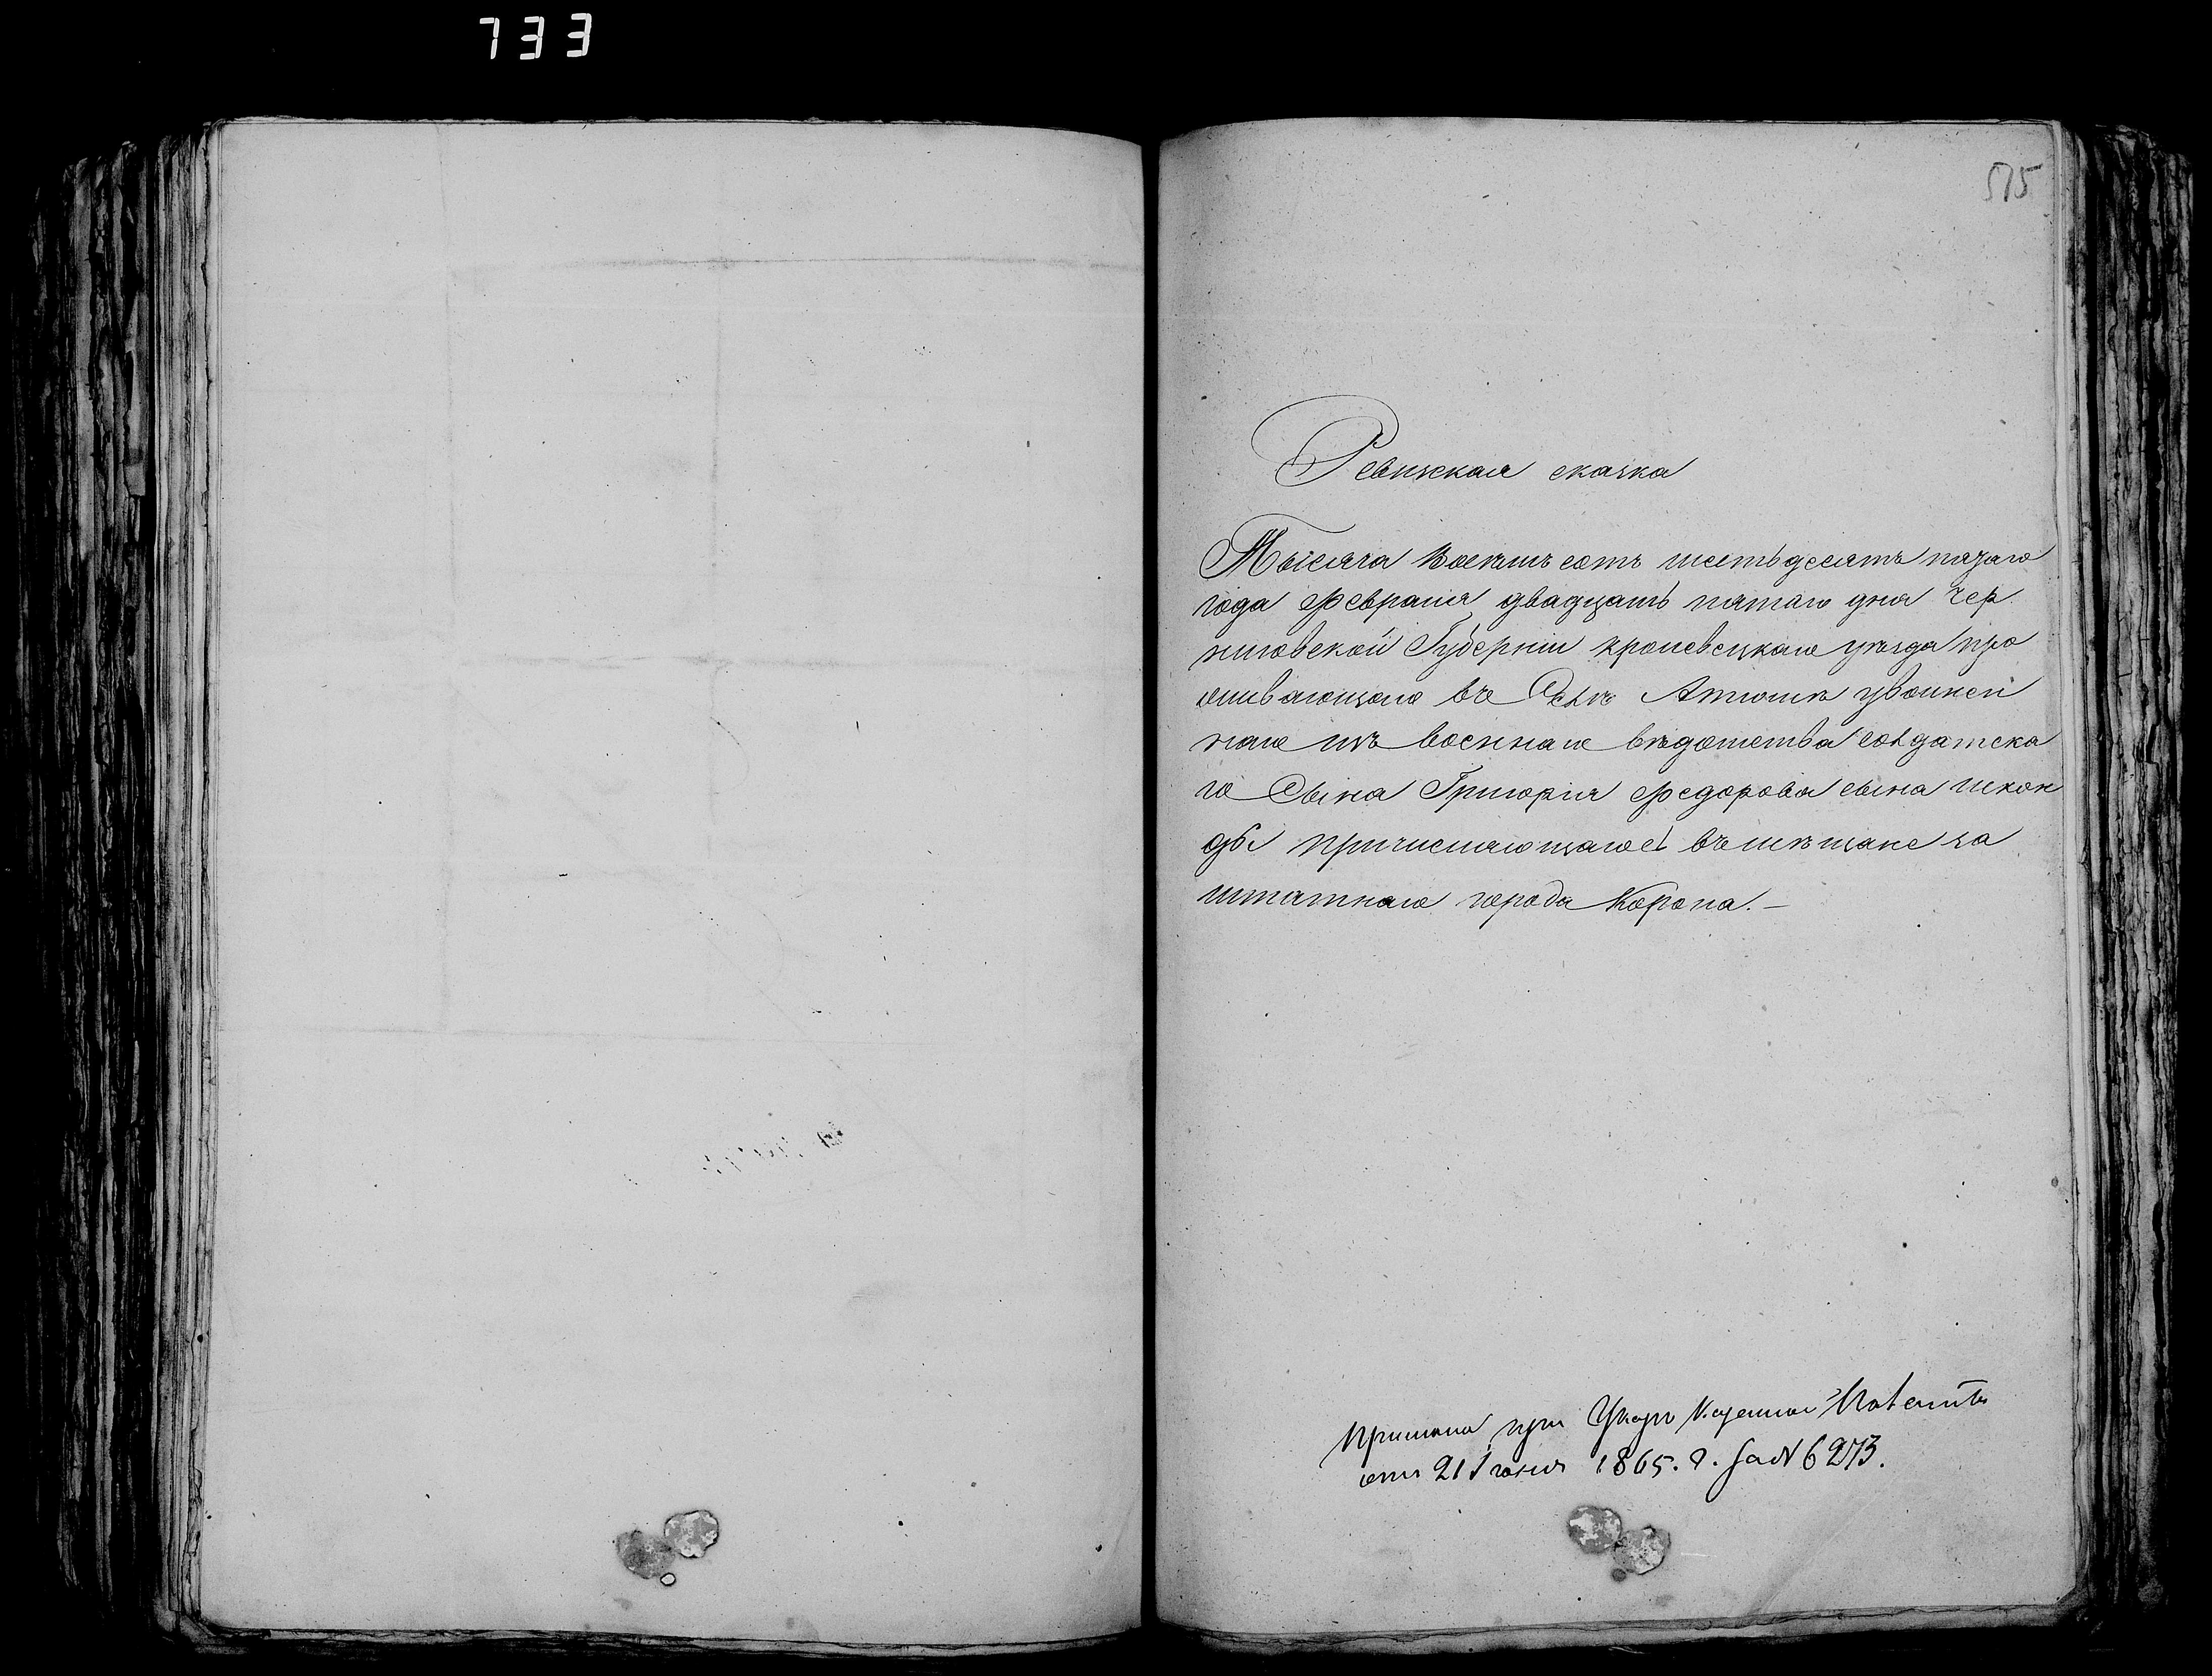 733
515
Ревизская сказка
Тысяча восемь сотъ шестьдесятъ пятаго
года февраля двадцать пятаго дня Чер
ниговской Губерніи Кролевецкаго уѣзда про
живающаго въ Селѣ Атюшѣ уволнен
наго изъ военнаго вѣдомства солдатска
го Сына Григорія Федорова сына
причисляющагось въ мѣщане за
штатнаго города Коропа.—
при Казенной Палаты
отъ 21 Іюня 1865. г. за N 6273.